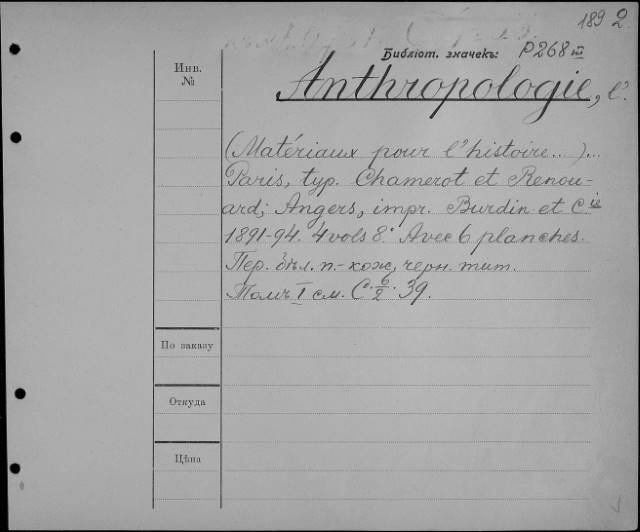 189 2.
Библіот. значекъ: P268 III
Anthropologie, l'.
(Matériaux pour l'histoire...)...
Paris, typ. Chamerot et Renou-
ard; Angers, impr. Burdin et Cie
1891-94. 4 vols 8.° Avec 6 planches.
Пер. бѣл. п.-кож, черн. тит.
Томъ I см. С. 6/2. 39.
Инв.
№
По заказу
Откуда
Цѣна